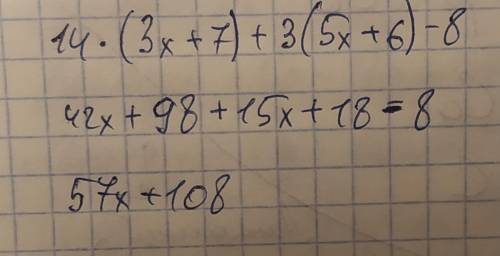 14 · (3x + 7) + 3(5x + 6) - 8
42x + 98 + 15x + 18 - 8
57x + 108